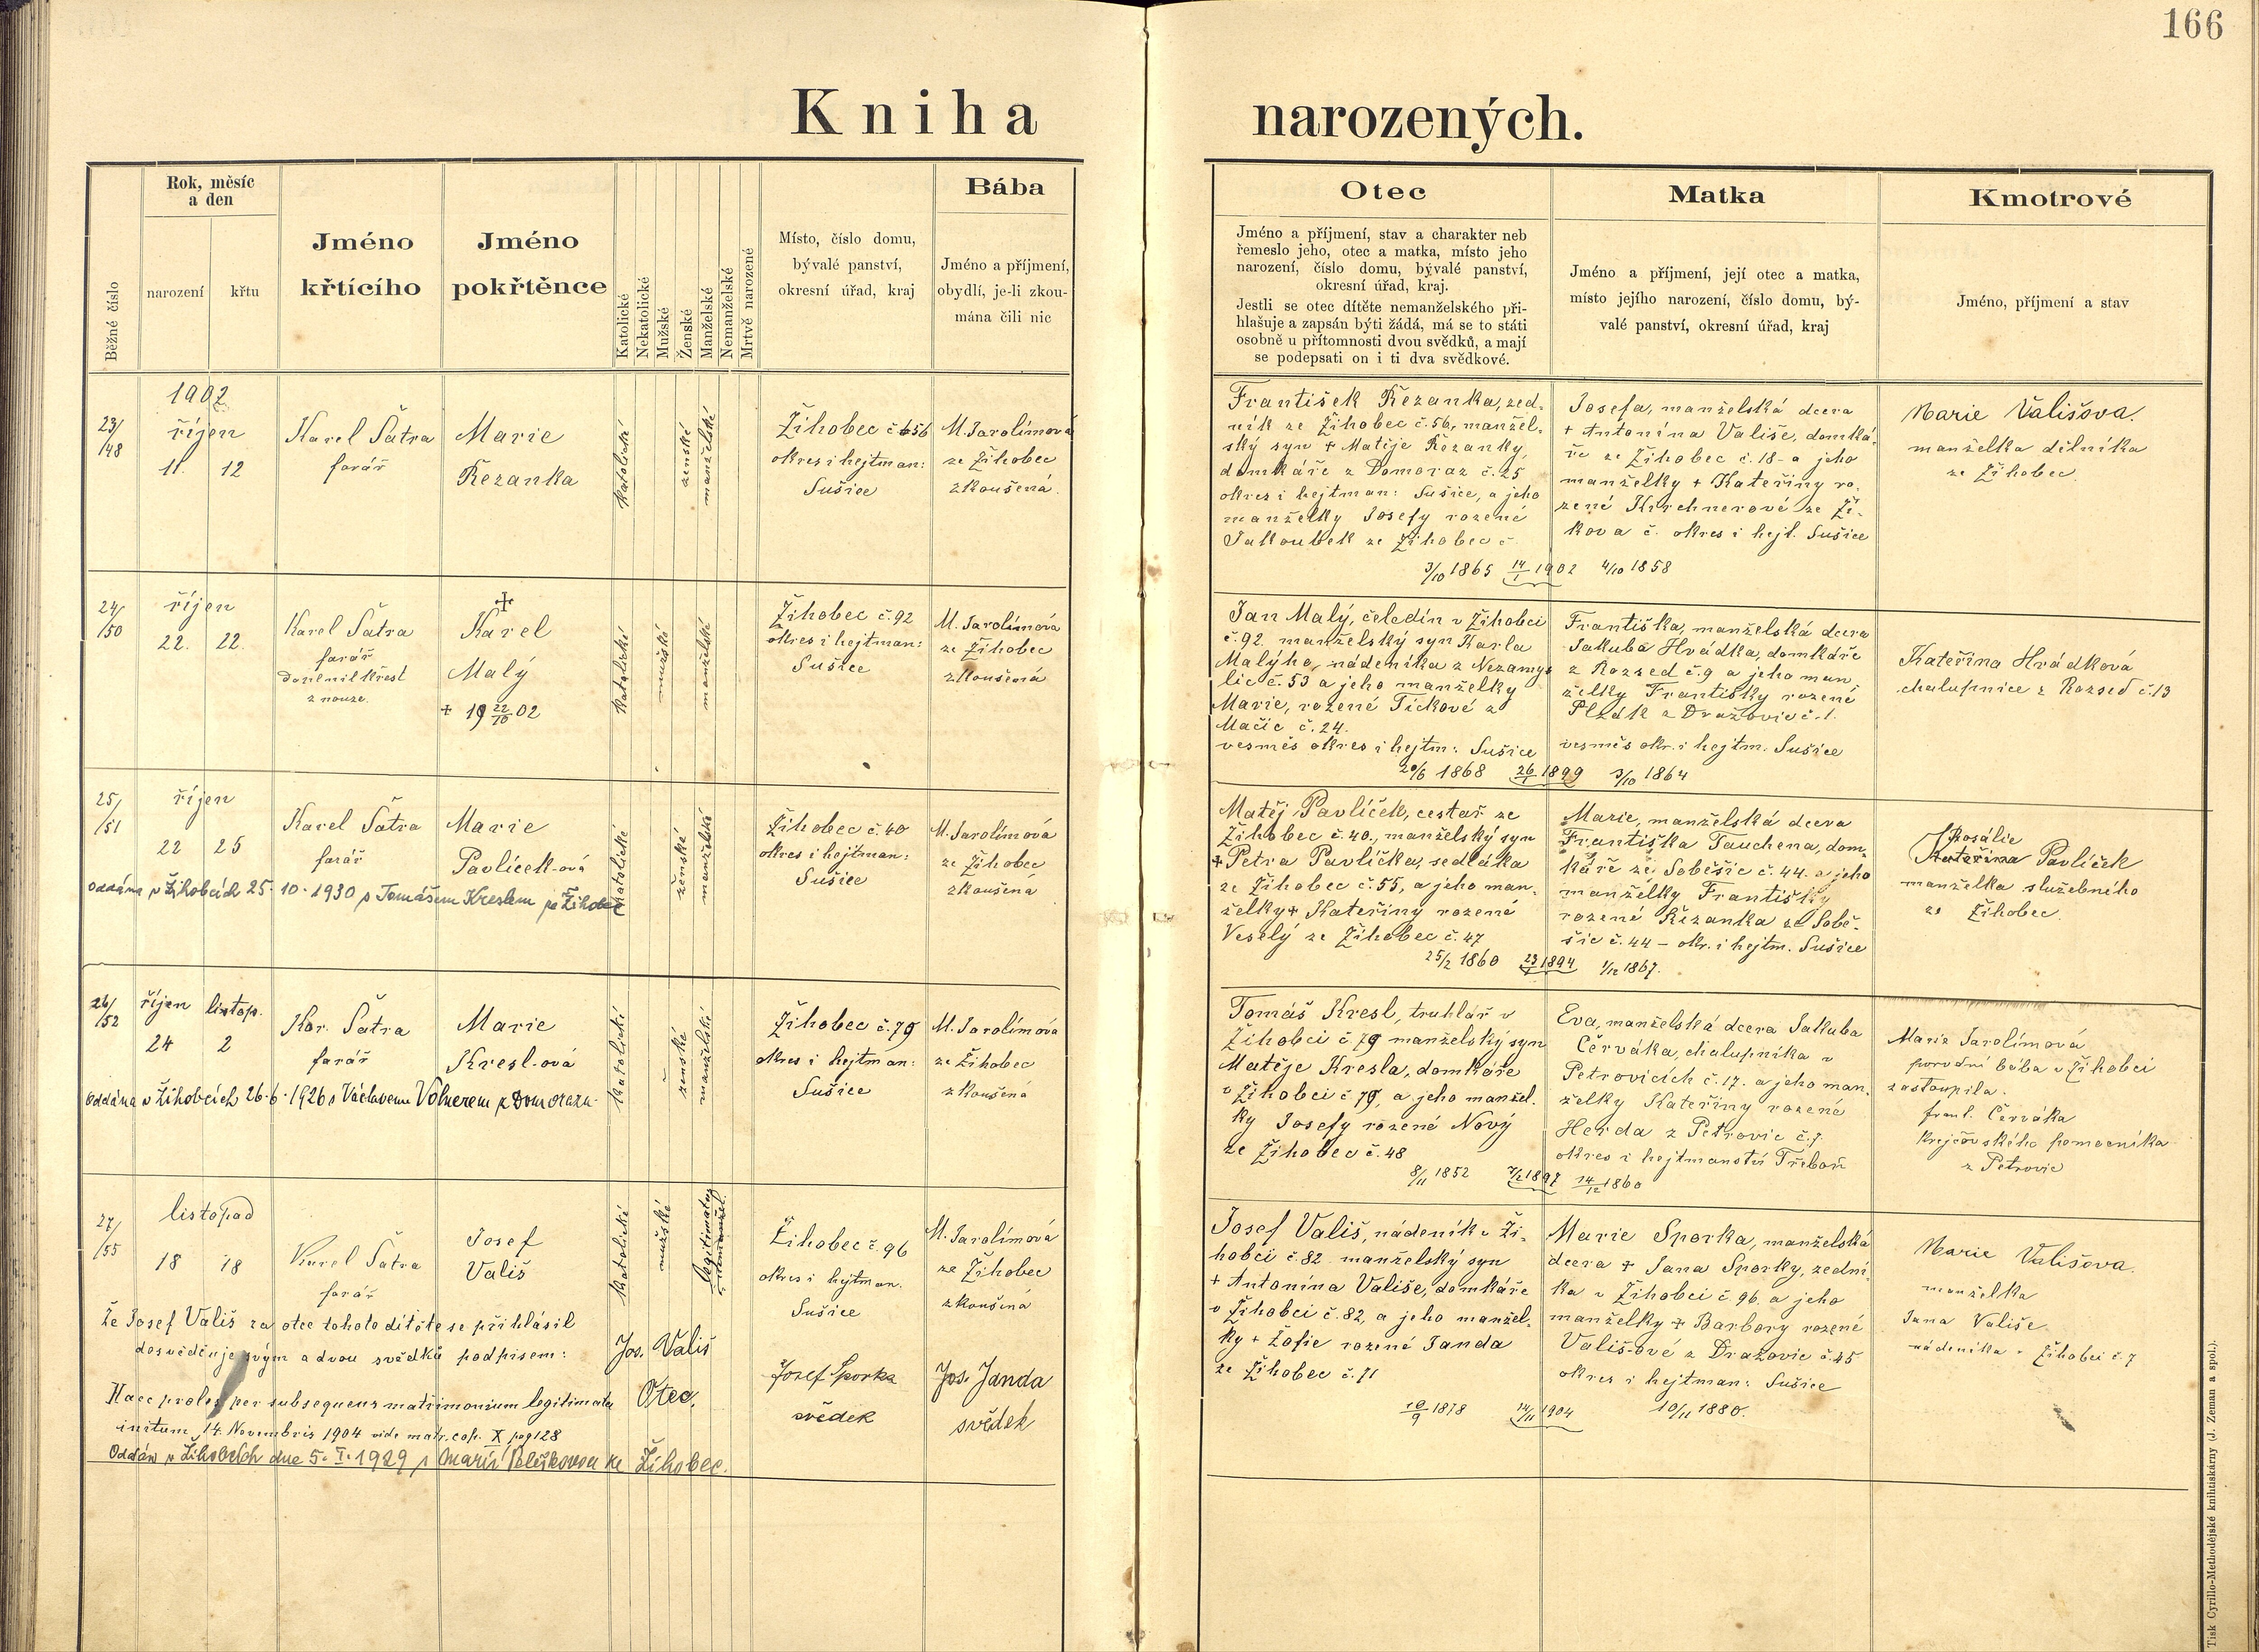 166
Kniha narozených.
Běžné číslo
Rok, měsíc
a den
narození
křtu
Jméno
křtícího
Jméno
pokřtěnce
Katolické
Nekatolické
Mužské
Ženské
Manželské
Nemanželské
Mrtvě narozené
Místo, číslo domu,
bývalé panství,
okresní úřad, kraj
Bába
Jméno a příjmení,
obydlí, je-li zkou-
mána čili nic
Otec
Jméno a příjmení, stav a charakter neb
řemeslo jeho, otec a matka, místo jeho
narození, číslo domu, bývalé panství,
okresní úřad, kraj.
Jestli se otec dítěte nemanželského při-
hlašuje a zapsán býti žádá, má se to státi
osobně u přítomnosti dvou svědků, a mají
se podepsati on i ti dva svědkové.
Matka
Jméno a příjmení, její otec a matka,
místo jejího narození, číslo domu, bý-
valé panství, okresní úřad, kraj
Kmotrové
Jméno, příjmení a stav
1902
23/
/48
říjen
11. 12
Karel Šatra
farář
Marie
Řezanka
katolické
ženské
manželské
Žihobec č. 56
okres i hejtman:
Sušice
M. Jarolímová
ze Žihobec
zkoušená.
František Řezanka, zed-
ník ze Žihobec č. 56, manžel-
ský syn + Matěje Řezanky,
domkáře z Domoraz č. 25
okres i hejtman: Sušice, a jeho
manželky Josefy rozené
Jakoubek ze Žihobec č
3/10 1865 14/1 1902 4/10 1858
Josefa, manželská dcera
+ Antonína Vališe, domká-
ře ze Žihobec č. 18 a jeho
manželky + Kateřiny ro-
zené Kirchnerové ze Ži-
kova č. okres i hejt. Sušice
Marie Vališova.
manželka dělníka
ze Žihobec.
24/
/50
říjen
22. 22.
Karel Šatra
farář
doplnil křest
z nouze.
+
Karel
Malý
+ 19 22/10 02
katolické
mužské
manželské
Žihobec č. 92
okres i hejtman:
Sušice
M. Jarolímová
ze Žihobec
zkoušená
Jan Malý, čeledín v Žihobci
č. 92. manželský syn Karla
Malýho, nádeníka z Nezamys
lic č. 53 a jeho manželky
Marie, rozené Tickové z
Mačic č. 24.
vesměs okres i hejtm: Sušice
20/6 1868 26/1 1899 3/10 1864
Františka, manželská dcera
Jakuba Hrádka, domkáře
z Rozsed č. 9 a jeho man
želky Františky rozené
Plzák z Dražovic č. 1.
vesměs okr. i hejtm. Sušice
Kateřina Hrádková
chalupnice z Rozsed č. 13
25/
/51
říjen
22 25
Karel Šatra
farář
Marie
Pavlíček-ová
oddána v Žihobcích 25. 10. 1930 s Tomášem Kreslem ze Žihobec
katolické
ženské
manželské
Žihobec č. 40
okres i hejtman:
Sušice
M. Jarolímová
ze Žihobec
zkoušená
Matěj Pavlíček, cestař ze
Žihobec č. 40., manželský syn
+ Petra Pavlíčka, sedláka
ze Žihobec č. 55, a jeho man-
želky + Kateřiny rozené
Veselý ze Žihobec č. 47
25/2 1860 23/1 1894 1/12 1867.
Marie, manželská dcera
Františka Tauchena, dom-
káře ze Soběšic č. 44. a jeho
manželky Františky
rozené Řezanka ze Sobě-
šic č. 44 – okr. i hejtm. Sušice
Rosálie
Kateřina Pavlíček
manželka služebného
ze Žihobec.
26/
/52
říjen listop.
24 2
Kar. Šatra
farář
Marie
Kresl-ová
oddána v Žihobcích 26. 6. 1926 s Václavem Volnerem z Domorazu
katolické
ženské
manželské
Žihobec č. 79
okres i hejtman:
Sušice
M. Jarolímová
ze Žihobec
zkoušená
Tomáš Kresl, truhlář v
Žihobci č 79 manželský syn
Matěje Kresla, domkáře
v Žihobci č 79, a jeho manžel.
ky Josefy rozené Nový
ze Žihobec č. 48
8/11 1852 7/2 1897 14/12 1860
Eva, manželská dcera Jakuba
Červáka, chalupníka v
Petrovicích č. 17. a jeho man.
želky Kateřiny rozené
Herda z Petrovic č. 7.
okres i hejtmanství Třeboň
Marie Jarolímová
porodní bába v Žihobci
zastoupila.
Frant. Červáka
krejčovského pomocníka
z Petrovic
27/
/55
listopad
18 18
Karel Šatra
farář
Josef
Vališ
katolické
mužské
legitimatus
nemanžel.
Žihobec č. 96
okres i hejtman.
Sušice
M. Jarolímová
ze Žihobec
zkoušená
Josef Vališ, nádeník v Ži-
hobci č. 82 manželský syn
+ Antonína Vališe, domkáře
v Žihobci č. 82, a jeho manžel.
ky + Žofie rozené Janda
ze Žihobec č. 71
10/9 1878 14/11 1904 10/11 1880.
Marie Sporka, manželská
dcera + Jana Sporky, zední-
ka v Žihobci č. 96. a jeho
manželky + Barbory rozené
Vališ-ové z Dražovic č. 45
okres i hejtman: Sušice
Marie Vališova.
manželka
Jana Vališe
nádeníka v Žihobci č. 7
Že Josef Vališ za otce tohoto dítěte se přihlásil
dosvědčuje svým a dvou svědků podpisem:
Jos. Vališ
Otec.
Josef Sporka
svědek
Jos. Janda
svědek
Haec proles per subsequens matrimonium legitimata
initum 14. Novembris 1904 vide matr. cop. X pag 128
Oddán v Žihobcích dne 5. I. 1929 s Marií ze Žihobec.
Tisk Cyrillo-Methodějské knihtiskárny (J. Zeman a spol.).